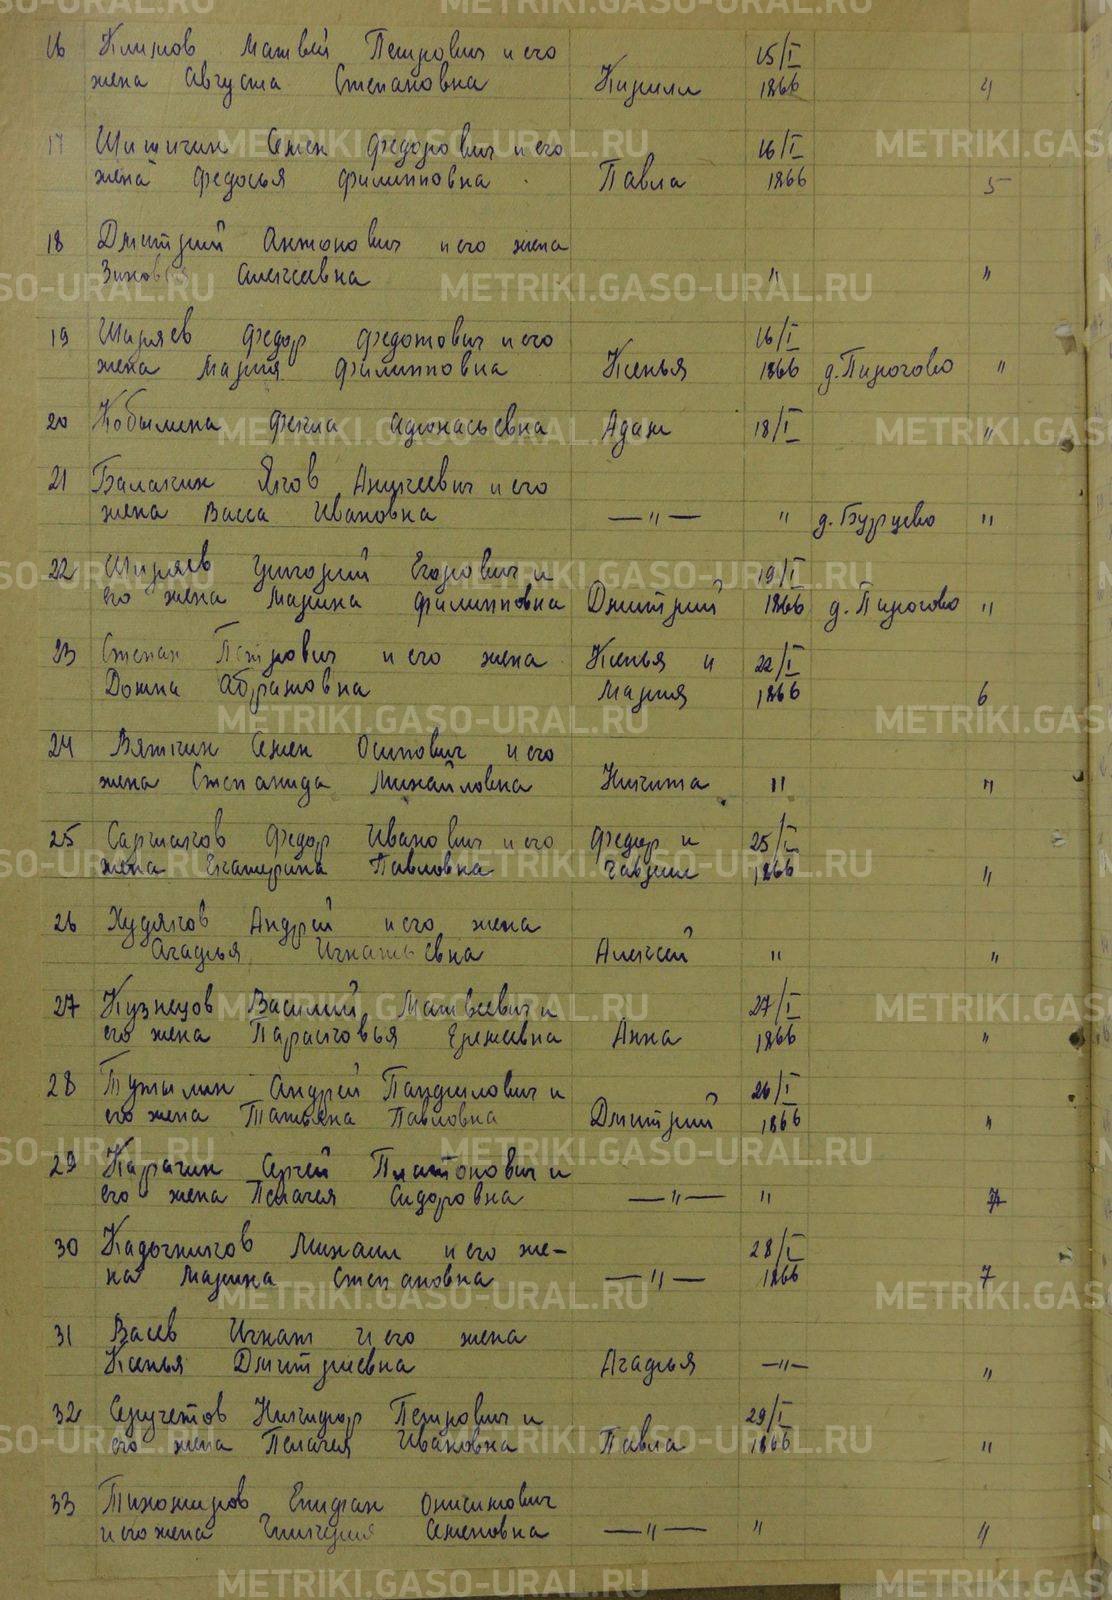 16 Климов Матвей Петрович и его 15/I
жена Августа Степановна Кирилл 1866 4
17 Шишкин Семен Федорович и его 16/I
жена Федосья Филипповна Павла 1866 5
18 Дмитрий Антонович и его жена
Зиновья Алексеевна " "
19 Ширяев Федор Федотович и его 16/I
жена Мария Филипповна Ксенья 1866 д. Пирогово "
20 Кобылина Фекла Афонасьевна Адам 18/I "
21 Балакин Яков Андреевич и его
жена Васса Ивановна —"— " д. Бурцево "
22 Ширяев Григорий Егорович и 19/I
его жена Марина Филипповна Дмитрий 1866 д. Пирогово "
23 Степан Петрович и его жена Ксенья и 22/I
Домна Абрамовна Мария 1866 6
24 Вяткин Семен Осипович и его
жена Степанида Михайловна Никита " "
25 Сартаков Федор Иванович и его Федор и 25/I
жена Екатерина Павловна Гаврил 1866 "
26 Худяков Андрей и его жена
Агафья Игнатьевна Алексей " "
27 Кузнецов Василий Матвеевич и 27/I
его жена Парасковья Еремеевна Анна 1866 "
28 Андрей Панфилович и 26/I
его жена Татьяна Павловна Дмитрий 1866 "
29 Карагин Сергей Платонович и
его жена Пелагея Сидоровна —"— " 7
30 Кадочников Михаил и его же- 28/I
на Марина Степановна —"— 1866 7
31 Васев Игнат и его жена
Ксенья Дмитриевна Агафья —"— "
32 Никифор Петрович и 29/I
его жена Пелагея Ивановна Павла 1866 "
33 Тихомиров Епифан Онисимович
и его жена Гликерия Семеновна —"— " "
METRIKI.GASO-URAL.RU